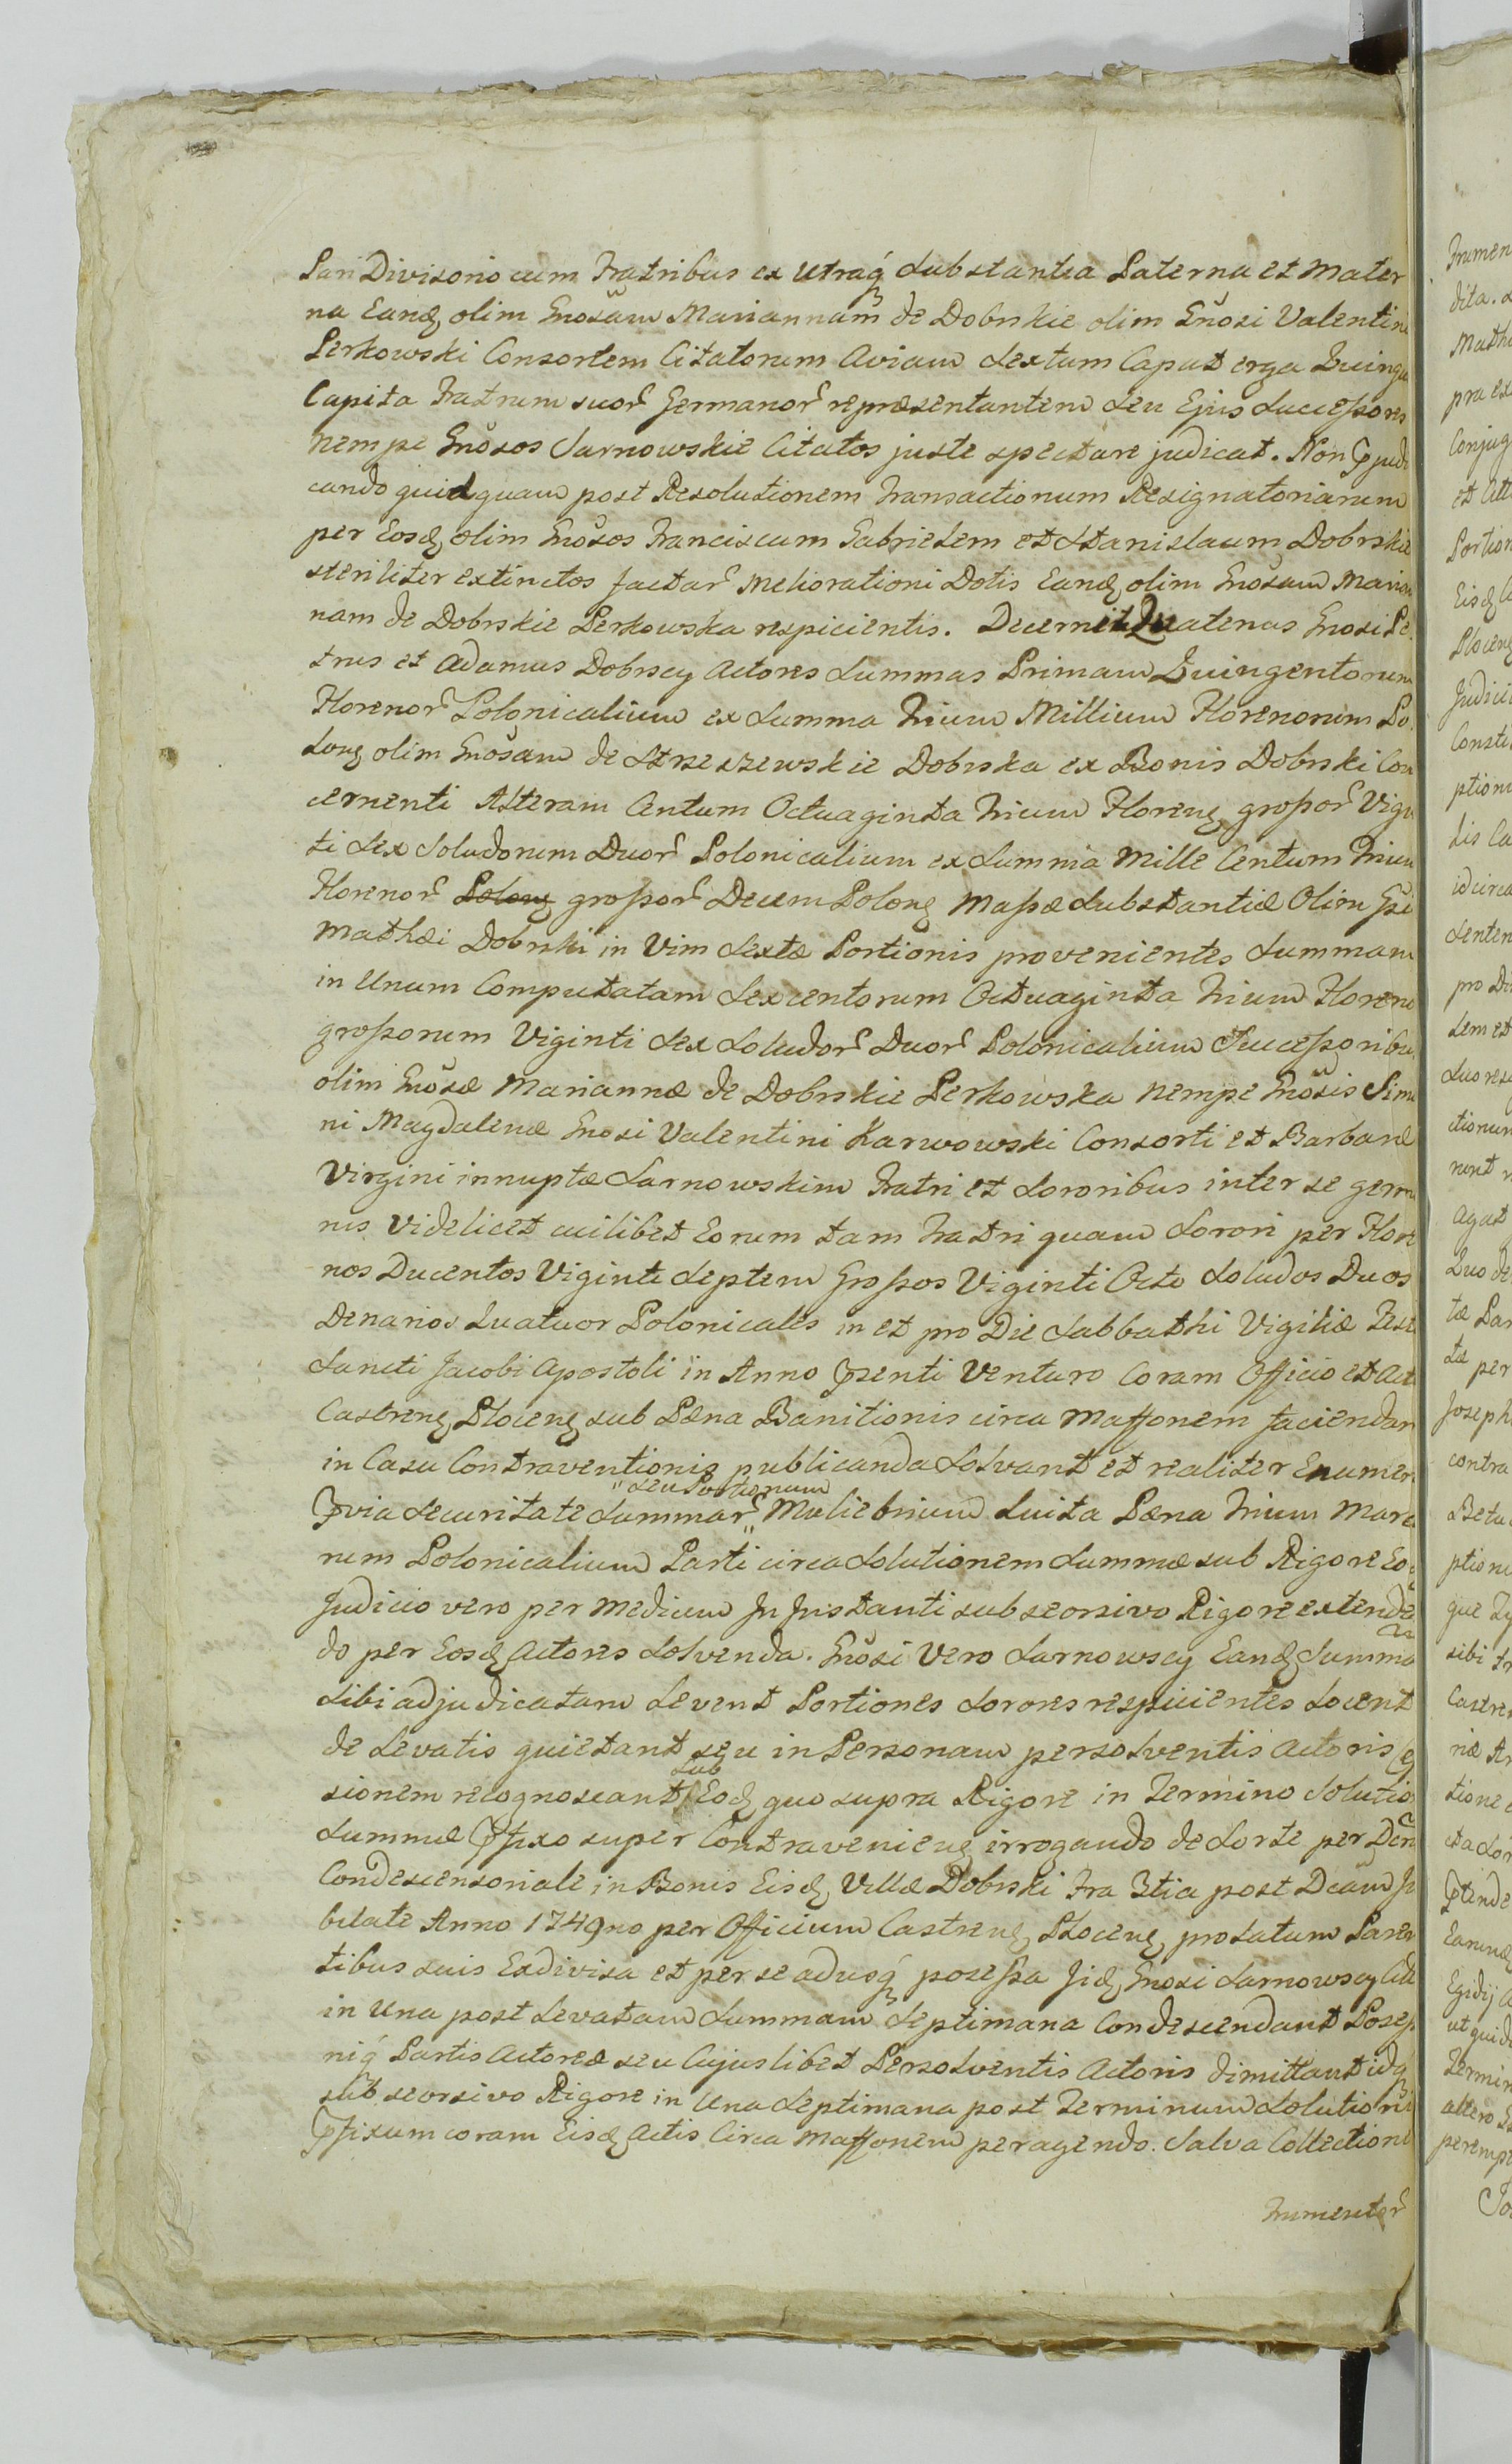 Pari Divisorio cum Fratribus ex utraq́ Substantia Paterna et Mater
na Eandꝫ olim Gnosam Mariannam de Dobrskie olim Gnosi Valentini
Perkowski Consortem Citatorum Aviam Sextum Caput erga Quinqu
Capita Fratrum suor Germanor repræsentantem seu Ejus Successores
nempe Gnosos Sarnowskie Citatos juste spectare judicat. Non Pjudi
cando quidquam post Resolutionem Transactionum Resignatoriarum
per Eosdꝫ olim Gnosos Franciscum Gabrielem et Stanislaum Dobrskie
steriliter extinctos factar meliorationi Dotis Eandꝫ olim Gnosam Marian
nam de Dobrskie Perkowska respicientis. Decernit Quatenus Gnosi Pe
trus et Adamus Dobrscy Actores Summas Primam Quingentorum
Florenor Polonicalium ex Summa Trium Millium Florenorum Po
lonꝫ olim Gnosam de Strzeszewskie Dobrska ex Bonis Dobrski Con
cernenti Alteram Centum Octuaginta Trium Florenꝫ grossor Vigin
ti Sex Solidorum Duor Polonicalium ex Summa Mille Centum Trium
Florenor Polonꝫ grossor Decem Polonꝫ Massæ Substantiæ Olim Gsi
Mathæi Dobrski in Vim Sextæ Portionis provenientes Summam
in Unum Computatam Sexcentorum Octuaginta Trium Floreno
grossorum Viginti Sex Solidor Duor Polonicalium Successoribus
olim Gnosæ Mariannæ de Dobrskie Perkowska nempe Gnosis Simo
ni Magdalenæ Gnosi Valentini Karwowski Consorti et Barbaræ
Virgini innuptæ Sarnowskim Fratri et Sororibus inter se germa
nis Videlicet cuilibet Eorum tam Fratri quam Sorori per Flore
nos Ducentos Viginti Septem Grossos Viginti Octo Solidos Duos
Denarios Quatuor Polonicales in et pro Die Sabbathi Vigiliæ Fest
Sancti Jacobi Apostoli in Anno Psenti Venturo Coram Officio et Act
Castrenꝫ Plocenꝫ sub Pæna Banitionis circa maffonem faciendam
in Casu Contraventionis publicanda Solvant et realiter Enumer
Pvia Securitate Summar " seu Portionum " Muliebrium Luita Pæna Trium Marca
rum Polonicalium Parti circa Solutionem Summæ sub Rigore Eo
Judicio vero per medium In Instanti sub seorsivo Rigore extende
do per Eosdꝫ Actores Solvenda. Gnosi Vero Sarnowscy Eandꝫ Summa
Sibi adjudicatam Levent Portiones Sorores respicientes Locent
de Levatis quietant seu in Personam persolventis Actoris Ce
sionem recognoscant sub Eodꝫ quo supra Rigore in Termino Solutio
Summæ Pfixo super Contravenienꝫ irrogando de Sorte per Decr
Condescensoriale in Bonis Eisdꝫ Villæ Dobrski Fra 3tia post Dcam Ju
bilate Anno 1749no per Officium Castrenꝫ Plocenꝫ prolatum Paren
tibus suis Exdivisa et per se adusq́ possessa Jidꝫ Gnosi Sarnowscy Cit
in Una post Levatam Summam Septimana Condescendant Poses
niq́ Partis Actoreæ seu Cujuslibet Persolventis Actoris dimittant idq́
sub seorsivo Rigore in Una Septimana post Terminum Solutioni
Pfixum coram Eisdꝫ Actis Circa maffonem peragendo. Salva Collectione
Frumentor